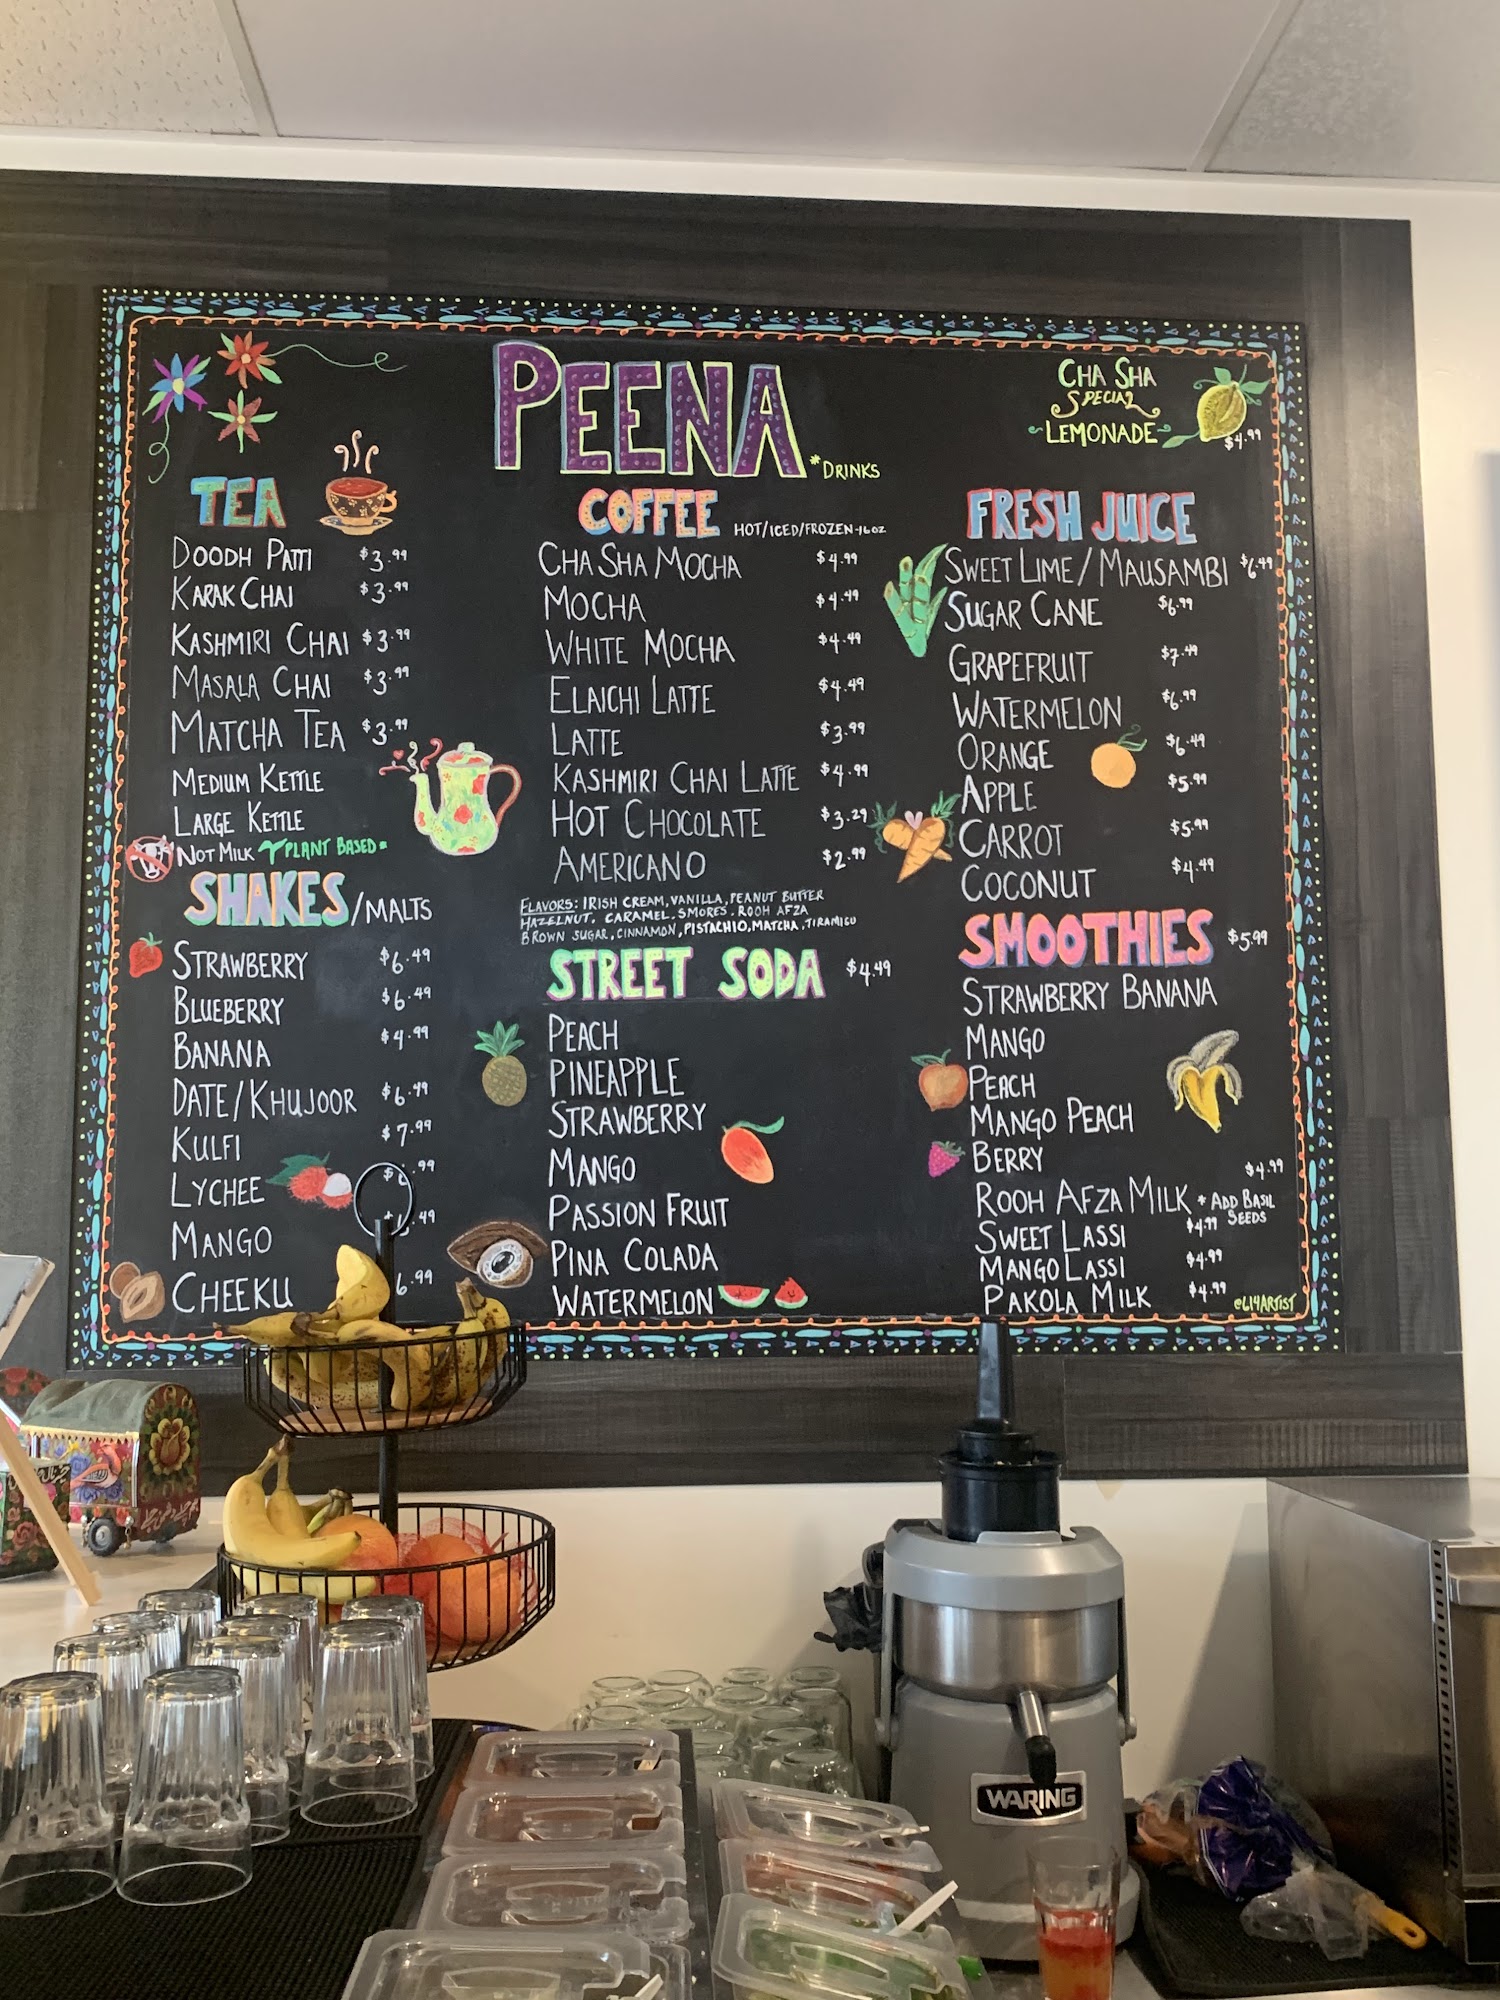 PEENA
*DRINKS
CHA SHA
SPECIAL
LEMONADE
$4.99
TEA
DOODH PATTI $3.99
KARAK CHAI $3.99
KASHMIRI CHAI $3.99
MASALA CHAI $3.99
MATCHA TEA $3.99
MEDIUM KETTLE
LARGE KETTLE
NOT MILK PLANT BASED
SHAKES/MALTS
STRAWBERRY $6.49
BLUEBERRY $6.49
BANANA $4.99
DATE/KHUJOOR $6.49
KULFI $7.99
LYCHEE .99
MANGO .49
CHEEKU 6.99
COFFEE HOT/ICED/FROZEN-16OZ
CHA SHA MOCHA $4.99
MOCHA $4.49
WHITE MOCHA $4.49
ELAICHI LATTE $4.49
LATTE $3.99
KASHMIRI CHAI LATTE $4.99
HOT CHOCOLATE $3.29
AMERICANO $2.99
FLAVORS: IRISH CREAM, VANILLA, PEANUT BUTTER
HAZELNUT, CARAMEL, SMORES, ROOH AFZA
BROWN SUGAR, CINNAMON, PISTACHIO, MATCHA, TIRAMISU
STREET SODA $4.49
PEACH
PINEAPPLE
STRAWBERRY
MANGO
PASSION FRUIT
PINA COLADA
WATERMELON
FRESH JUICE
SWEET LIME/MAUSAMBI $6.49
SUGAR CANE $6.99
GRAPEFRUIT $7.49
WATERMELON $6.99
ORANGE $6.49
APPLE $5.99
CARROT $5.99
COCONUT $4.49
SMOOTHIES $5.99
STRAWBERRY BANANA
MANGO
PEACH
MANGO PEACH
BERRY
ROOH AFZA MILK $4.99 * ADD BASIL
SEEDS
SWEET LASSI $4.99
MANGO LASSI $4.99
PAKOLA MILK $4.99
@L14ARTIST
WARING